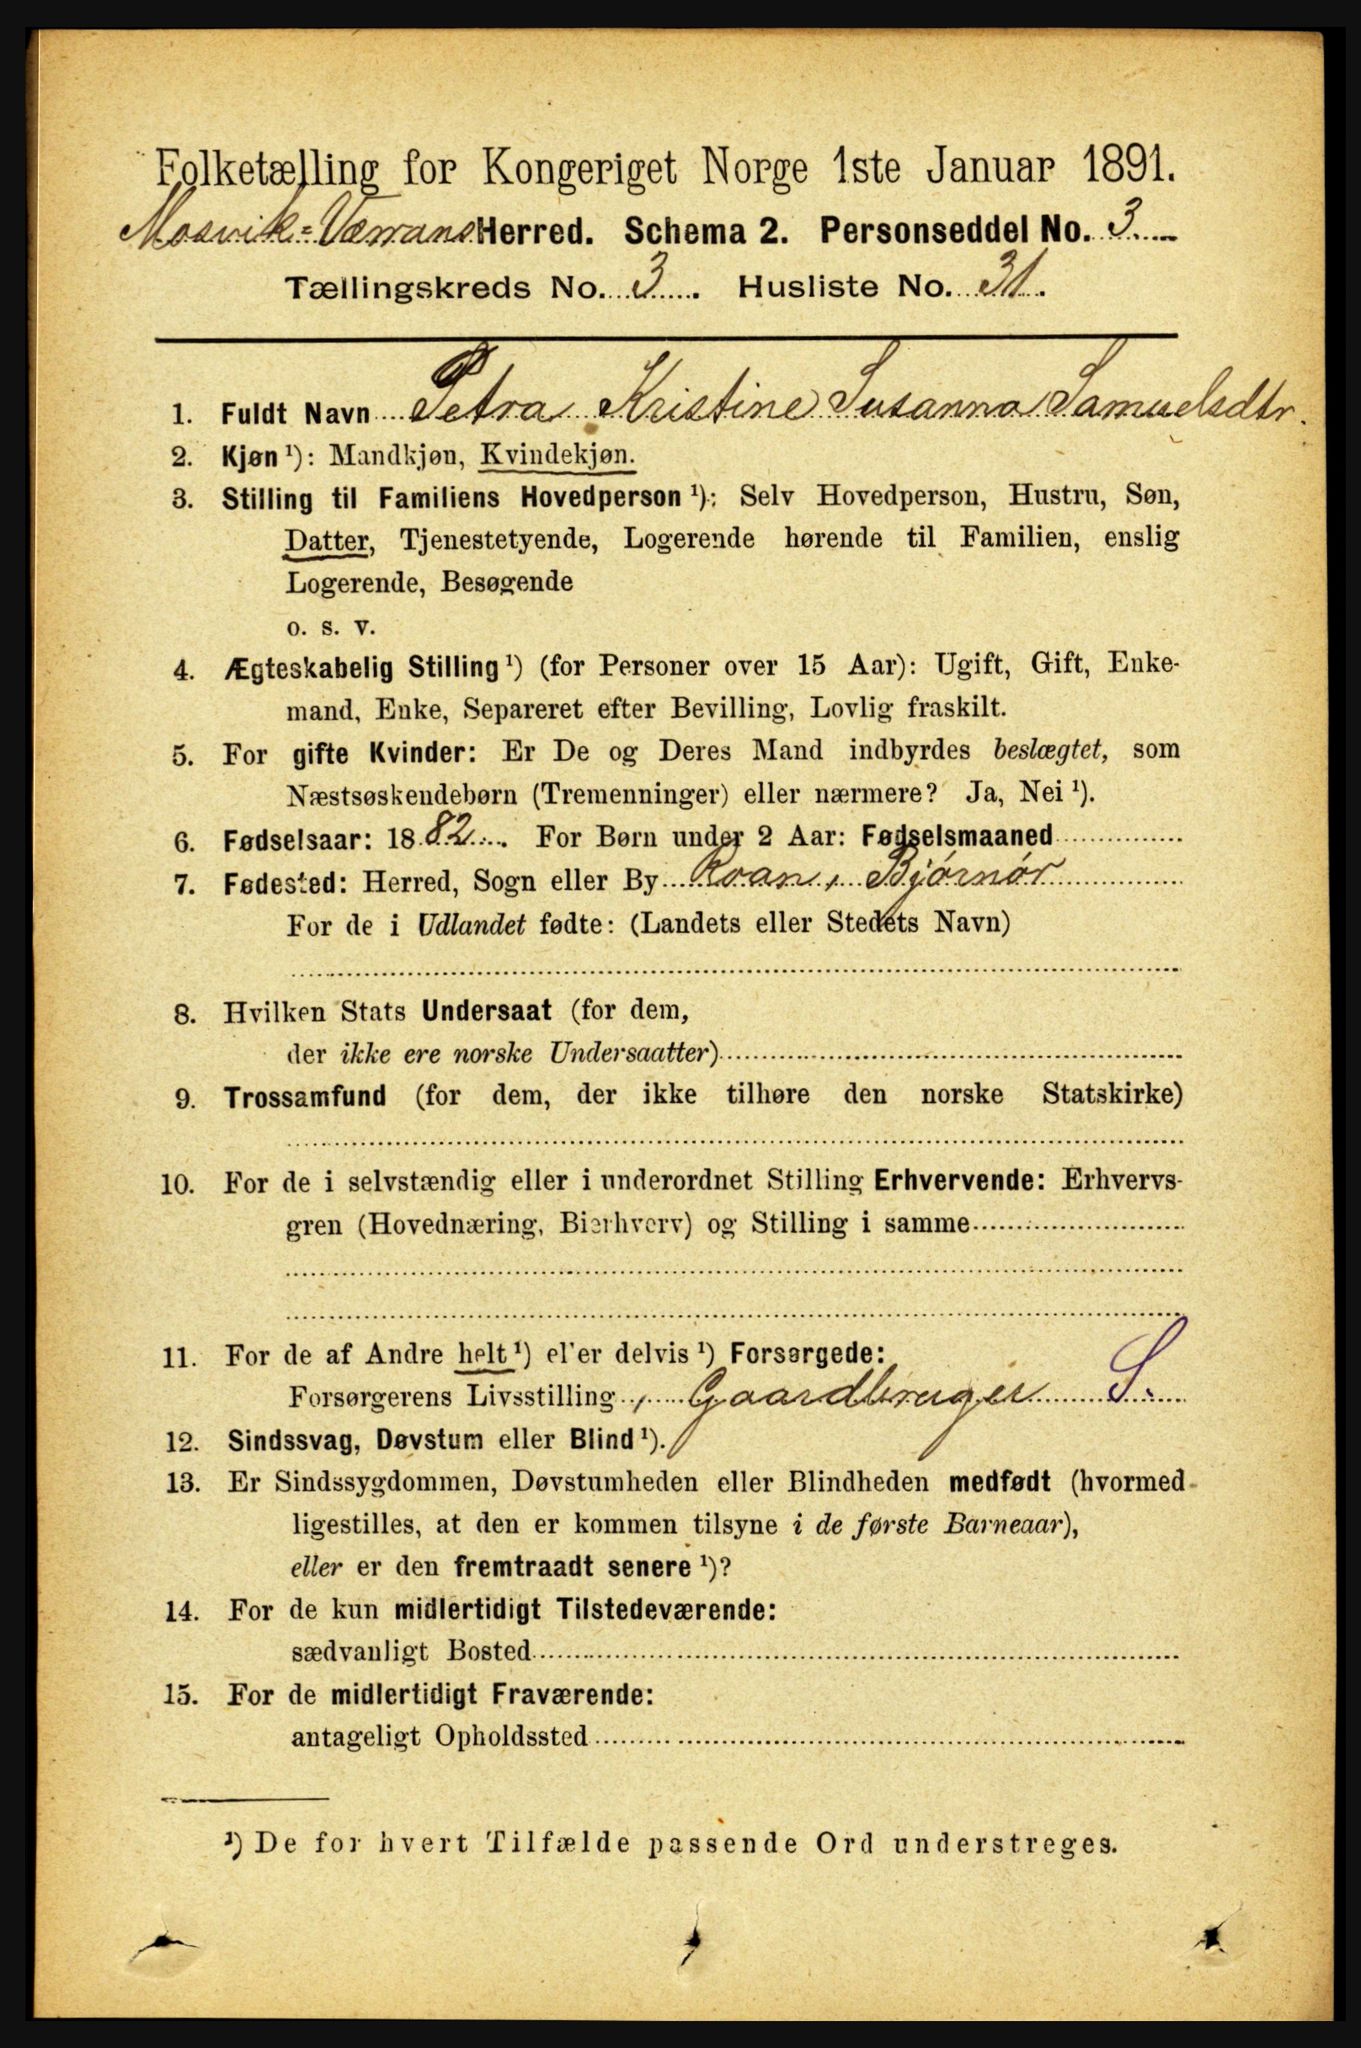 Folketælling for Kongeriget Norge 1ste Januar 1891.
Mosvik=Værrans Herred. Schema 2. Personseddel No. 3.
Tællingskreds No. 3. Husliste No. 31.
1. Fuldt Navn Petra Kristine Susanna Samuelsdtr.
2. Kjøn ¹): Mandkjøn, Kvindekjøn.
3. Stilling til Familiens Hovedperson ¹): Selv Hovedperson, Hustru, Søn,
Datter, Tjenestetyende, Logerende hørende til Familien, enslig
Logerende, Besøgende
o. s. v.
4. Ægteskabelig Stilling ¹) (for Personer over 15 Aar): Ugift, Gift, Enke-
mand, Enke, Separeret efter Bevilling, Lovlig fraskilt.
5. For gifte Kvinder: Er De og Deres Mand indbyrdes beslægtet, som
Næstsøskendebørn (Tremenninger) eller nærmere? Ja, Nei ¹).
6. Fødselsaar: 1882. For Børn under 2 Aar: Fødselsmaaned
7. Fødested: Herred, Sogn eller By Roan, Bjørnør
For de i Udlandet fødte: (Landets eller Stedets Navn)
8. Hvilken Stats Undersaat (for dem,
der ikke ere norske Undersaatter)
9. Trossamfund (for dem, der ikke tilhøre den norske Statskirke)
10. For de i selvstændig eller i underordnet Stilling Erhvervende: Erhvervs-
gren (Hovednæring, Bierhverv) og Stilling i samme
11. For de af Andre helt ¹) el'er delvis ¹) Forsørgede:
Forsørgerens Livsstilling, Gaardbruger S.
12. Sindssvag, Døvstum eller Blind ¹).
13. Er Sindssygdommen, Døvstumheden eller Blindheden medfødt (hvormed
ligestilles, at den er kommen tilsyne i de første Barneaar),
eller er den fremtraadt senere ¹)?
14. For de kun midlertidigt Tilstedeværende:
sædvanligt Bosted
15. For de midlertidigt Fraværende:
antageligt Opholdssted
¹) De for hvert Tilfælde passende Ord understreges.